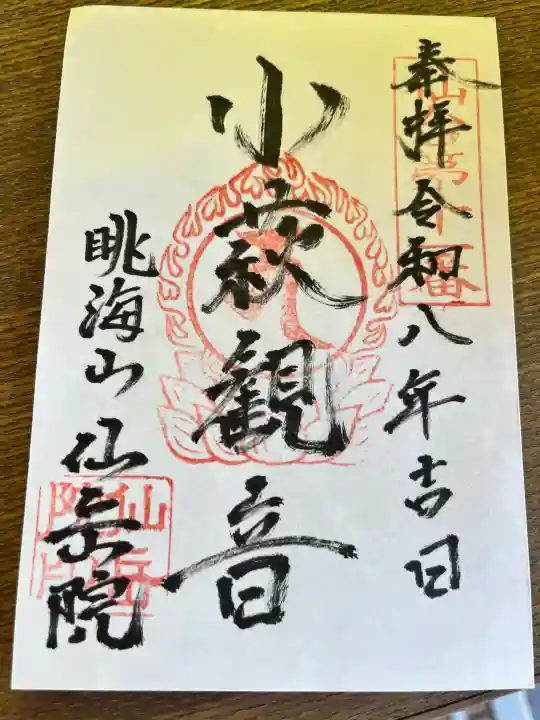 奉拝 令和八年吉日
小萩観音
眺海山 仙岳院
仙岳
院印